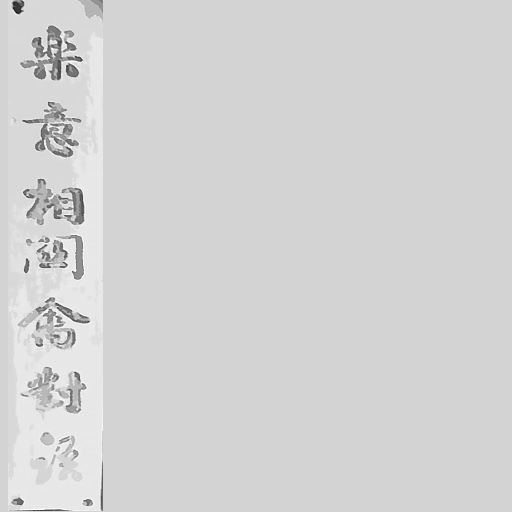 樂意相關禽對語